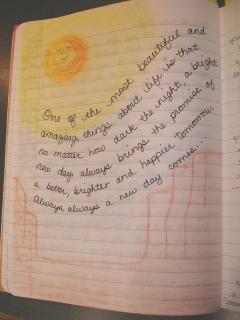 One of the most beautiful and
amazing things about life is that
no matter how dark the night, a bright
new day always brings the promise of
a better, brighter and happier tomorrow.
Always, always a new day comes...